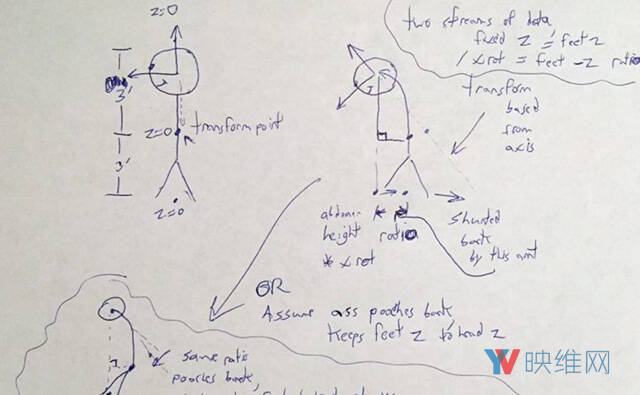 z=0
3'
z=0
transform point
3'
z=0
two streams of data
fixed z = feet z
/ xrot = feet -z ratio
transform
based
from
axis
abdomen
height ratio
* xrot
shunted
back
by this amt
OR
Assume ass pooches back
keeps feet z to head z
same ratio
pooches back,
YVR
映维网